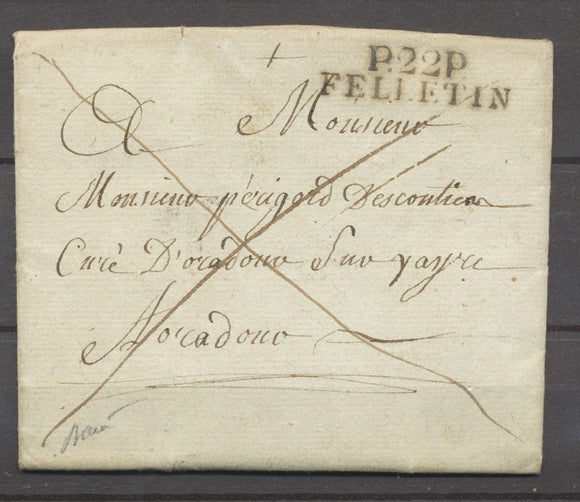 P.22P.
FELLETIN
A Monsieur
Monsieur périgord Descoutiers
Curé D'oradour Sur vayre
A oradour